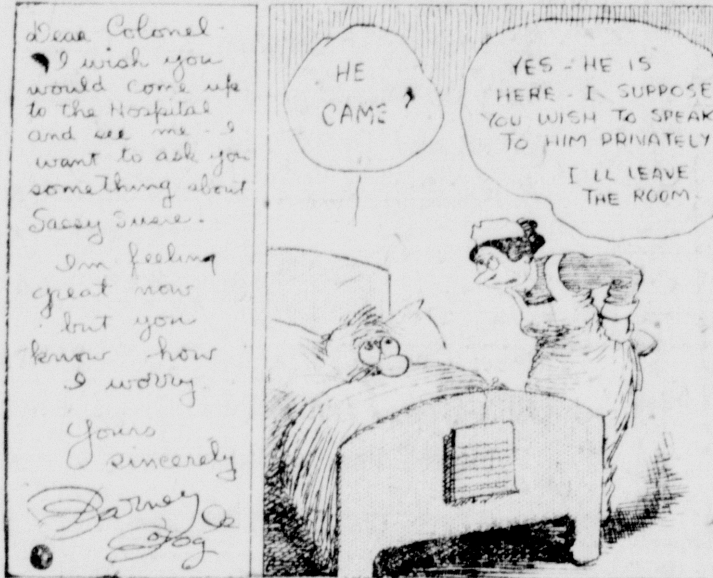 Dear Colonel-
I wish you
would come up
to the Hospital
and see me - I
want to ask you
something about
Sassy Susie.
Im feeling
great now
but you
know how
I worry.
Yours
sincerely
Barney
Google
HE
CAME?
YES - HE IS
HERE - I SUPPOSE
YOU WISH TO SPEAK
TO HIM PRIVATELY
I LL LEAVE
THE ROOM-